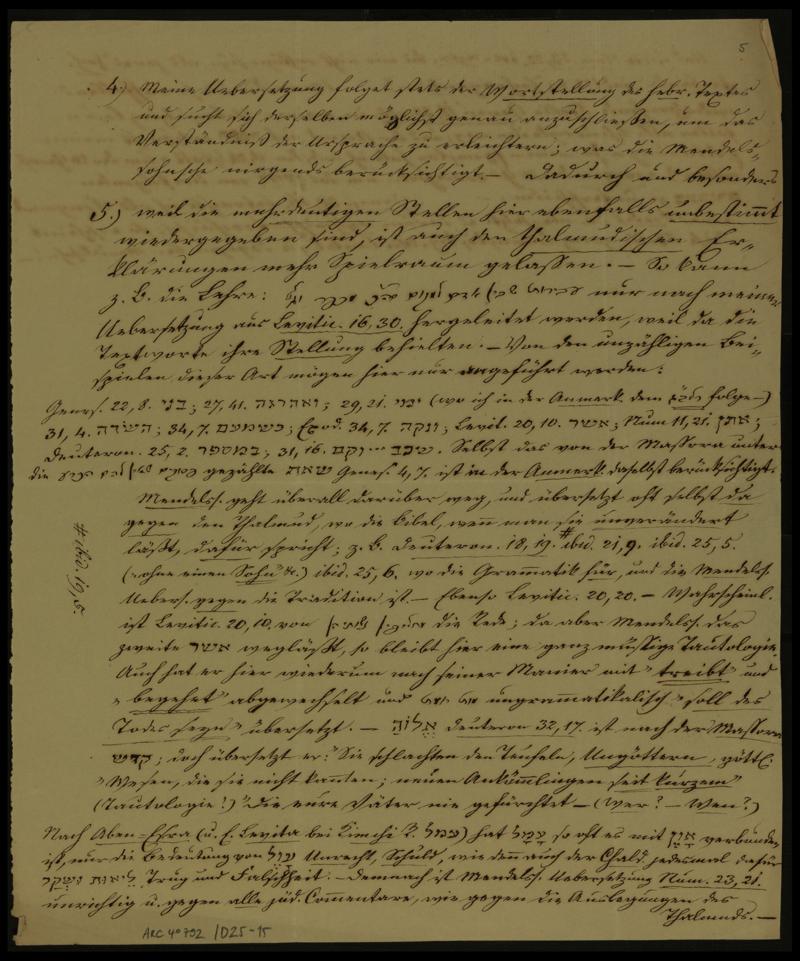 5
4.) Meine Uebersetzung folget stets der Wortstellung des hebr. Textes
und sucht sich derselben möglichst genau anzuschließen, um das
Verständniß der Ursprache zu erleichtern; was die Mendels-
sohnsche nirgends berücksichtigt. — Dadurch und besonders
5.) weil die mehrdeutigen Stellen hier ebenfalls unbestimmt
wiedergegeben sind, ist auch den thalmudischen Er-
klärungen mehr Spielraum gelassen. — So kann
z. B. die Lehre: nur nach meiner
Uebersetzung aus Levitic. 16, 30. hergeleitet werden, weil da die
Textworte ihre Stellung behielten. — Von den unzähligen Bei-
spielen dieser Art mögen hier nur angeführt werden:
Genes. 22, 8. בני; 27, 41. ; 29, 21. (wo ich in der Anmerk. dem folge —)
31, 4. השדה; 34, 7. כשמעם; Exod. 34, 7. ונקה; Levit. 20, 10. אשר; Num 11, 21. ;
Deuteron. 25, 2. במספר; 31, 16. שכב — וקם. Selbst das von der Massora unter
die gezählte שאת Genes. 4, 7. ist in der Anmerk. daselbst berücksichtigt.
Mendelss. geht überall darüber weg, und übersetzt oft selbst da
gegen den Thalmud, wo die Bibel, wenn man sie unverändert
läßt, dafür spricht; z. B. Deuteron. 18, 19. # ibid. 21, 9. ibid. 25, 5.
# ibid. 19, 5.
(„ohne einen Sohn" &c.) ibid. 25, 6. wo die Grammatik für, und die Mendelss.
Uebers. gegen die Tradition ist. — Ebenso Levitic. 20, 20. — Wahrscheinl.
ist Levitic. 20, 10. von die Rede; da aber Mendelss. das
zweite אשר wegläßt, so bleibt hier eine ganz müssige Tautologie.
Auch hat er hier wiederum nach seiner Manier mit „treibt" und
„begehet" abgewechselt und ungrammatikalisch „soll des
Todes seyn" übersetzt. — אֱלוֹהַ Deuteron 32, 17. ist nach der Massora
קדש; doch übersetzt er: „Sie schlachten den Teufeln, Ungöttern, göttl.
„Wesen, die sie nicht kanten; neuen Ankömlingen seit kurzem"
(Tautologie!) „Die eure Väter nie gefürchtet — (Wer? — Wen?)
Nach Aben-Esra (u. E. Levita bei Kimchi R. עמל) hat עָמָל so oft es mit אָוֶן verbunden
ist, nur die Bedeutung von עָוֶל Unrecht, Schuld, wie denn auch der Chald. jedesmal dafür
ושקר Trug und Falschheit. — Demnach ist Mendelss. Uebersetzung Num. 23, 21.
unrichtig u. gegen alle jüd. Commentare, wie gegen die Auslegungen des
Thalmuds. —
ARC 4° 792 / D25-15